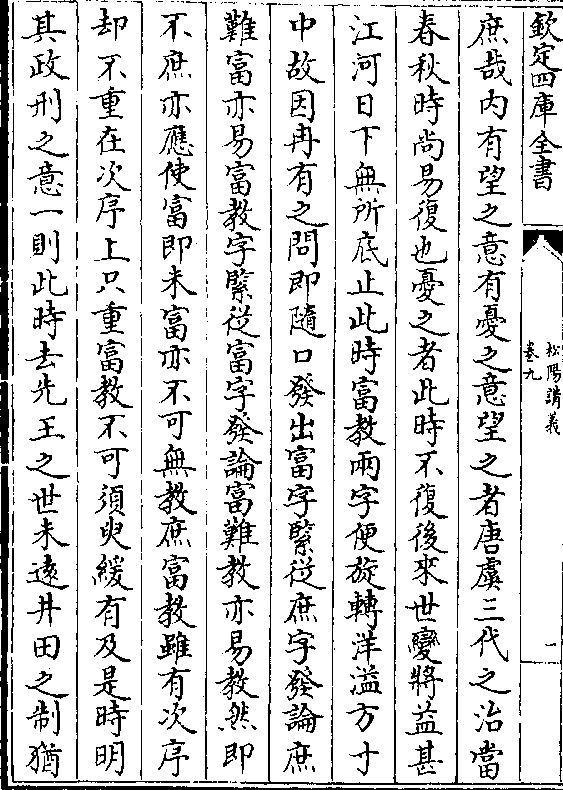 欽定四庫全書
松陽講義
卷九
一
庶哉内有望之意有憂之意望之者唐虞三代之治當
春秋時尚易復也憂之者此時不復後來世變將益甚
江河日下無所底止此時富教兩字便旋轉洋溢方寸
中故因冉有之問即隨口發出富字緊從庶字發論庶
難富亦易富教字緊從富字發論富難教亦易教然即
不庶亦應使富即未富亦不可無教庶富教雖有次序
却不重在次序上只重富教不可須臾緩有及是時明
其政刑之意一則此時去先王之世未遠井田之制猶